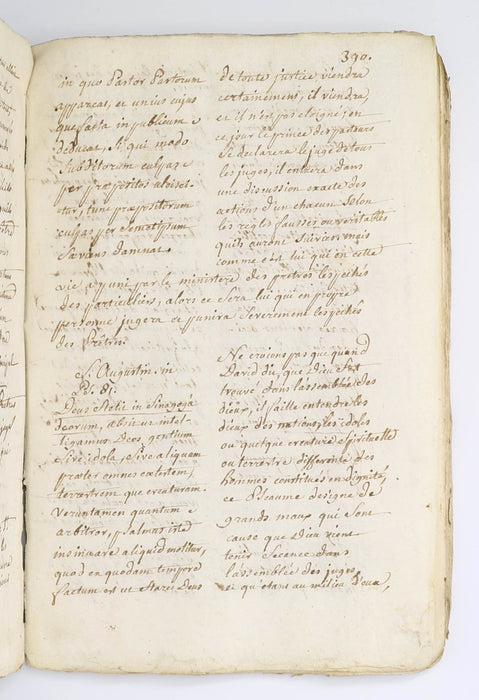 390.
in quo Pastor Pastorum
appareat, et unius cujus
que facta in publicum
deducat, Si qui modo
Subditorum culpas
per præpositos ulcisci-
tur, tunc præpositorum
culpas per Semetipsum
Sæviens damnat.
de toute justice viendra
certainement, il viendra,
et il n'en pas eloigné, en
ce jour le prince des pasteurs
Se declarera le juge de tous
les juges, il entrera dans
une discussion exacte des
actions d'un chacun Selon
les regles fausses ou veritables
qu'ils auront Suivies, mais
comme c'est lui qui en cette
vie a puni par le ministere des pretres les pechés
des particuliers, alors ce Sera lui qui en propre
personne jugera et punira Severement les pechés
des Prêtres.
S. Augustin. in
Ps. 81.
Deus stetit in Sinagoga
deorum, absit ut intel-
ligamus Deos gentium
Sive idola, Sive aliquam
præter omnes cœlestem,
terrestrem que creaturam.
Veruntamen quantum
arbitror, psalmus iste
insinuare aliquid molitur,
quod en quodam tempore
factum est ut staret Deus
Ne croions pas que quand
David dit, que Dieu s'est
trouvé dans l'assemblée des
dieux, il faille entendre les
dieux des nations, les idoles
ou quelque creature Spirituelle
ou terrestre differente des
hommes constitués en Dignité,
ce Pseaume designe de
grands maux qui Sont
cause que Dieu vient
tenir Seance dans
l'assemblée des juges,
et qu'étant au milieu d'eux,